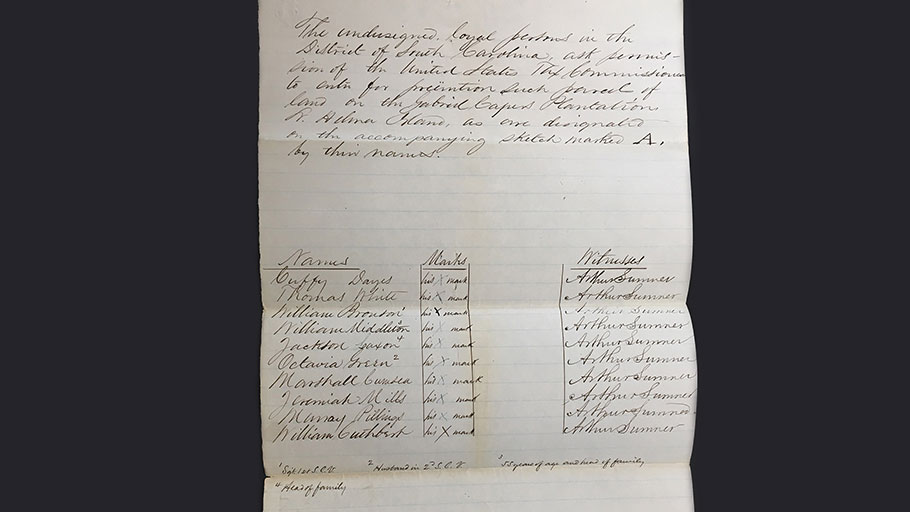 The undersigned, loyal persons in the
District of South Carolina, ask permis-
sion of the United States Tax Commissioners
to enter for preemtion such parcel of
land on the Gabriel Capers Plantation
St. Helena Island, as are designated
on the accompanying sketch marked A,
by their names.
Names Marks Witnesses
Cuffy his X mark Arthur Sumner
Thomas White his X mark Arthur Sumner
William Bronson¹ his X mark Arthur Sumner
William Middleton³ his X mark Arthur Sumner
Jackson Saxon⁴ his X mark Arthur Sumner
Octavia Green² his X mark Arthur Sumner
Marshall his X mark Arthur Sumner
Jeremiah Mills his X mark Arthur Sumner
Murray his X mark Arthur Sumner
William Cuthbert his X mark Arthur Sumner
¹ Sgt 1st S.C.V. ² Husband in 2ᵈ S.C.V. ³ 55 years of age and head of family
⁴ Head of family